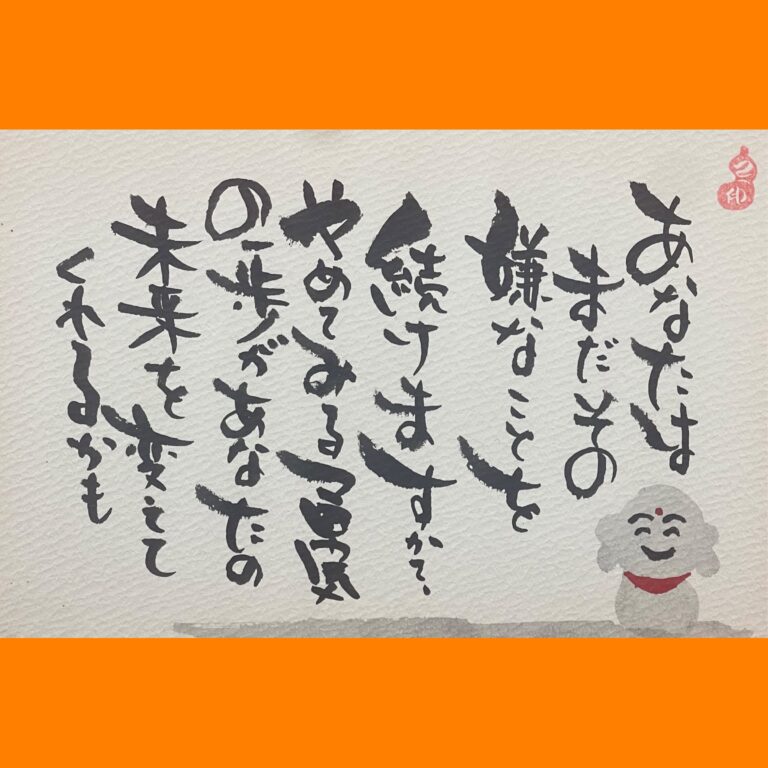 あなたは
まだその
嫌なことを
続けますか?、
やめてみる勇気
の一歩があなたの
未来を変えて
くれるかも